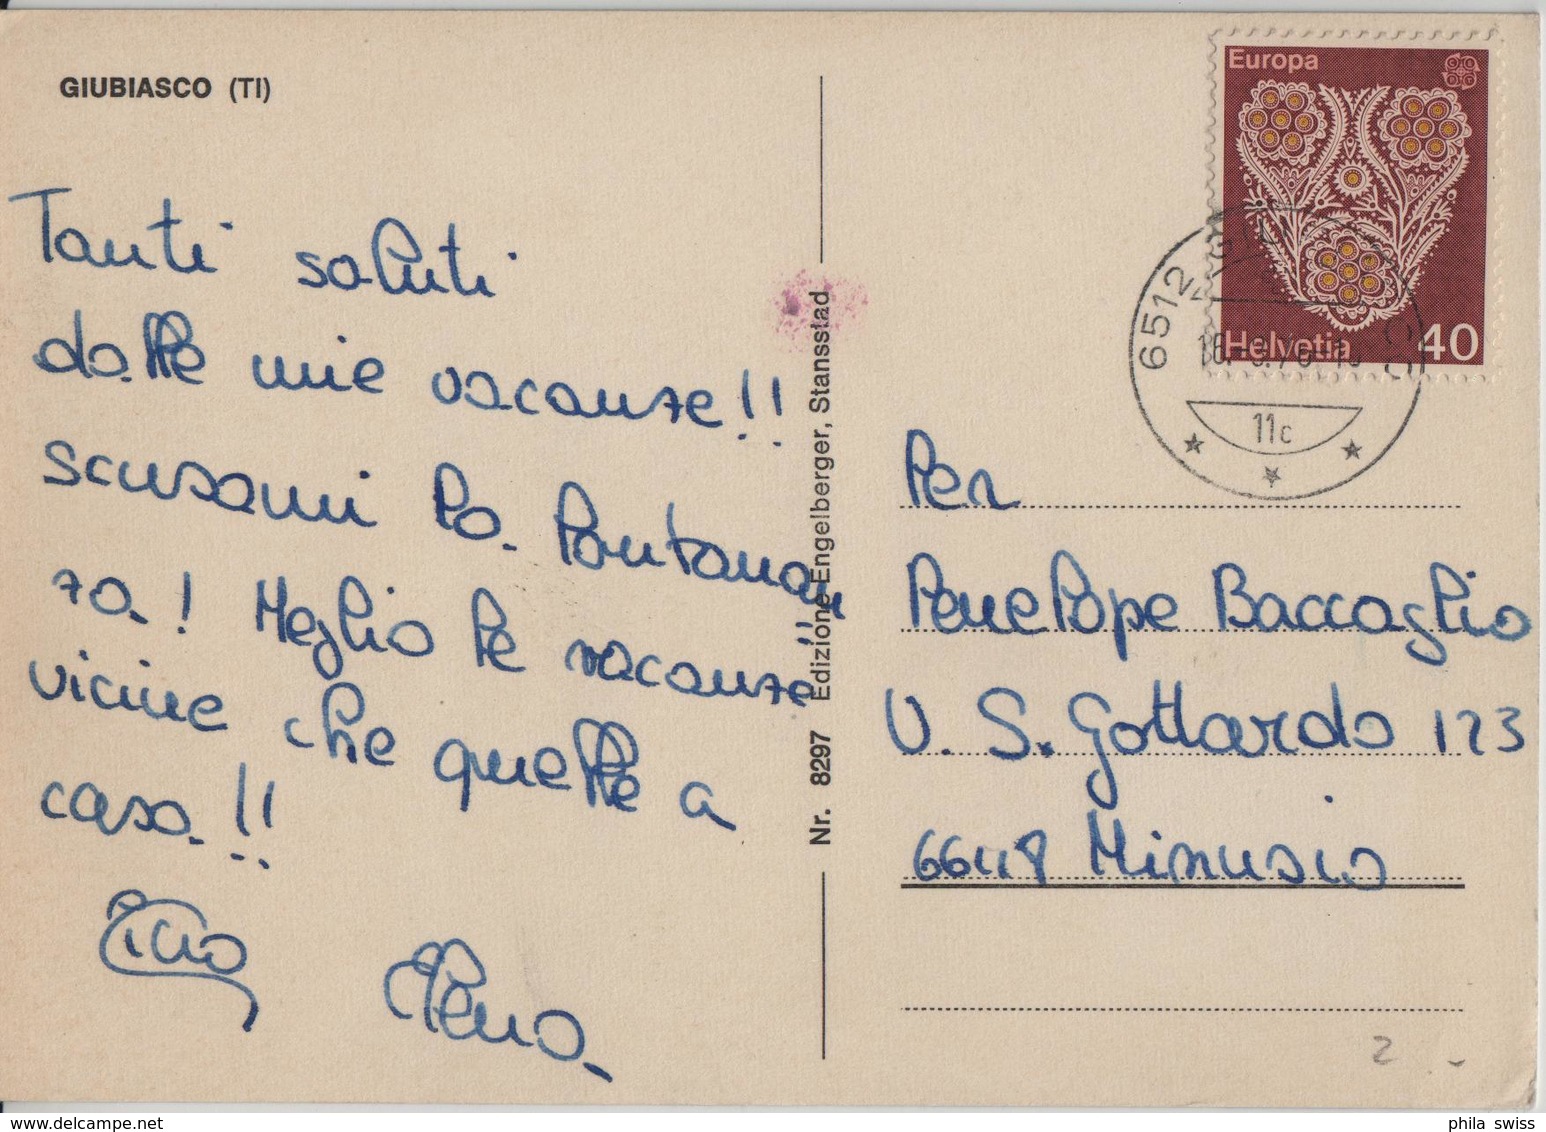 GIUBIASCO (TI)
Tanti saluti
dalle mie vacanze!!
scusami la lontanan
za! Meglio le vacanze
vicine che quelle a
casa!!
Ciao
Elena
Nr. 8297 Edizione Engelberger, Stansstad
Europa
Helvetia 40
6512
11c
Per
Penelope Baccaglio
V. S. Gottardo 123
6648 Minusio
2
phila swiss